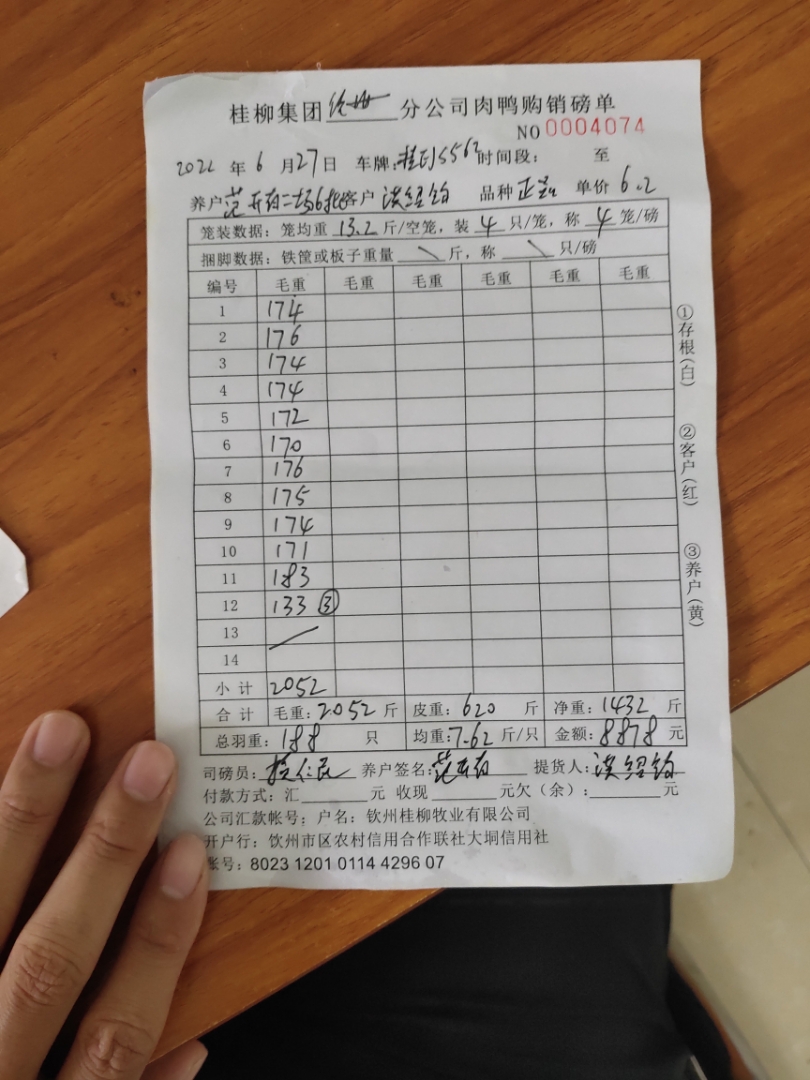 桂柳集团 钦州 分公司肉鸭购销磅单
NO 0004074
2022 年 6 月 27 日 车牌: 5562 时间段: 至
养户 范开 二场6批 客户 洪绍钧 品种 正 单价 6.2
笼装数据: 笼均重 13.2 斤/空笼, 装 4 只/笼, 称 4 笼/磅
捆脚数据: 铁筐或板子重量 \ 斤, 称 \ 只/磅
编号 毛重 毛重 毛重 毛重 毛重 毛重
1 174
2 176
3 174
4 174
5 172
6 170
7 176
8 175
9 174
10 171
11 183
12 133 ③
13
14
小计 2052
合计 毛重: 2052 斤 皮重: 620 斤 净重: 1432 斤
总羽重: 188 只 均重: 7.62 斤/只 金额: 8878 元
司磅员: 养户签名: 范开 提货人: 洪绍钧
付款方式: 汇 元 收现 元欠(余): 元
公司汇款帐号; 户名: 钦州桂柳牧业有限公司
开户行: 钦州市区农村信用合作联社大垌信用社
账号: 8023 1201 0114 4296 07
①存根(白)
②客户(红)
③养户(黄)